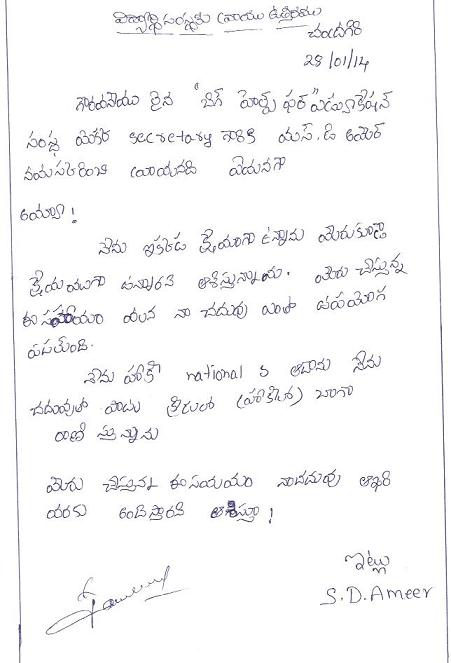 విద్యార్థి సంస్థకు వ్రాయు ఉత్తరము
చంద్రగిరి
28/01/14
గౌరవనీయులైన "బిగ్ హెల్ప్ ఫర్ ఎడ్యుకేషన్"
సంస్థ యొక్క secretary గారికి యస్.డి అమీర్
నమస్కరించి వ్రాయునది ఏమనగా
అయ్యా!
నేను ఇక్కడ క్షేమంగా ఉన్నాను మీరుకూడా
క్షేమముగా ఉన్నారని ఆశిస్తున్నాను. మీరు చేస్తున్న
ఈ సహాయం వలన నా చదువు ఎంతో ఉపయోగ
పడుతుంది.
నేను హాకీ national s ఆడాను నేను
చదువుతో పాటు క్రీడలలో (హాకీలో) బాగా
రాణిస్తున్నాను
మీరు చేస్తున్న ఈ సహాయం నా చదువు ఆఖరి
వరకు అందిస్తారని ఆశిస్తూ!
ఇట్లు
S.D.Ameer